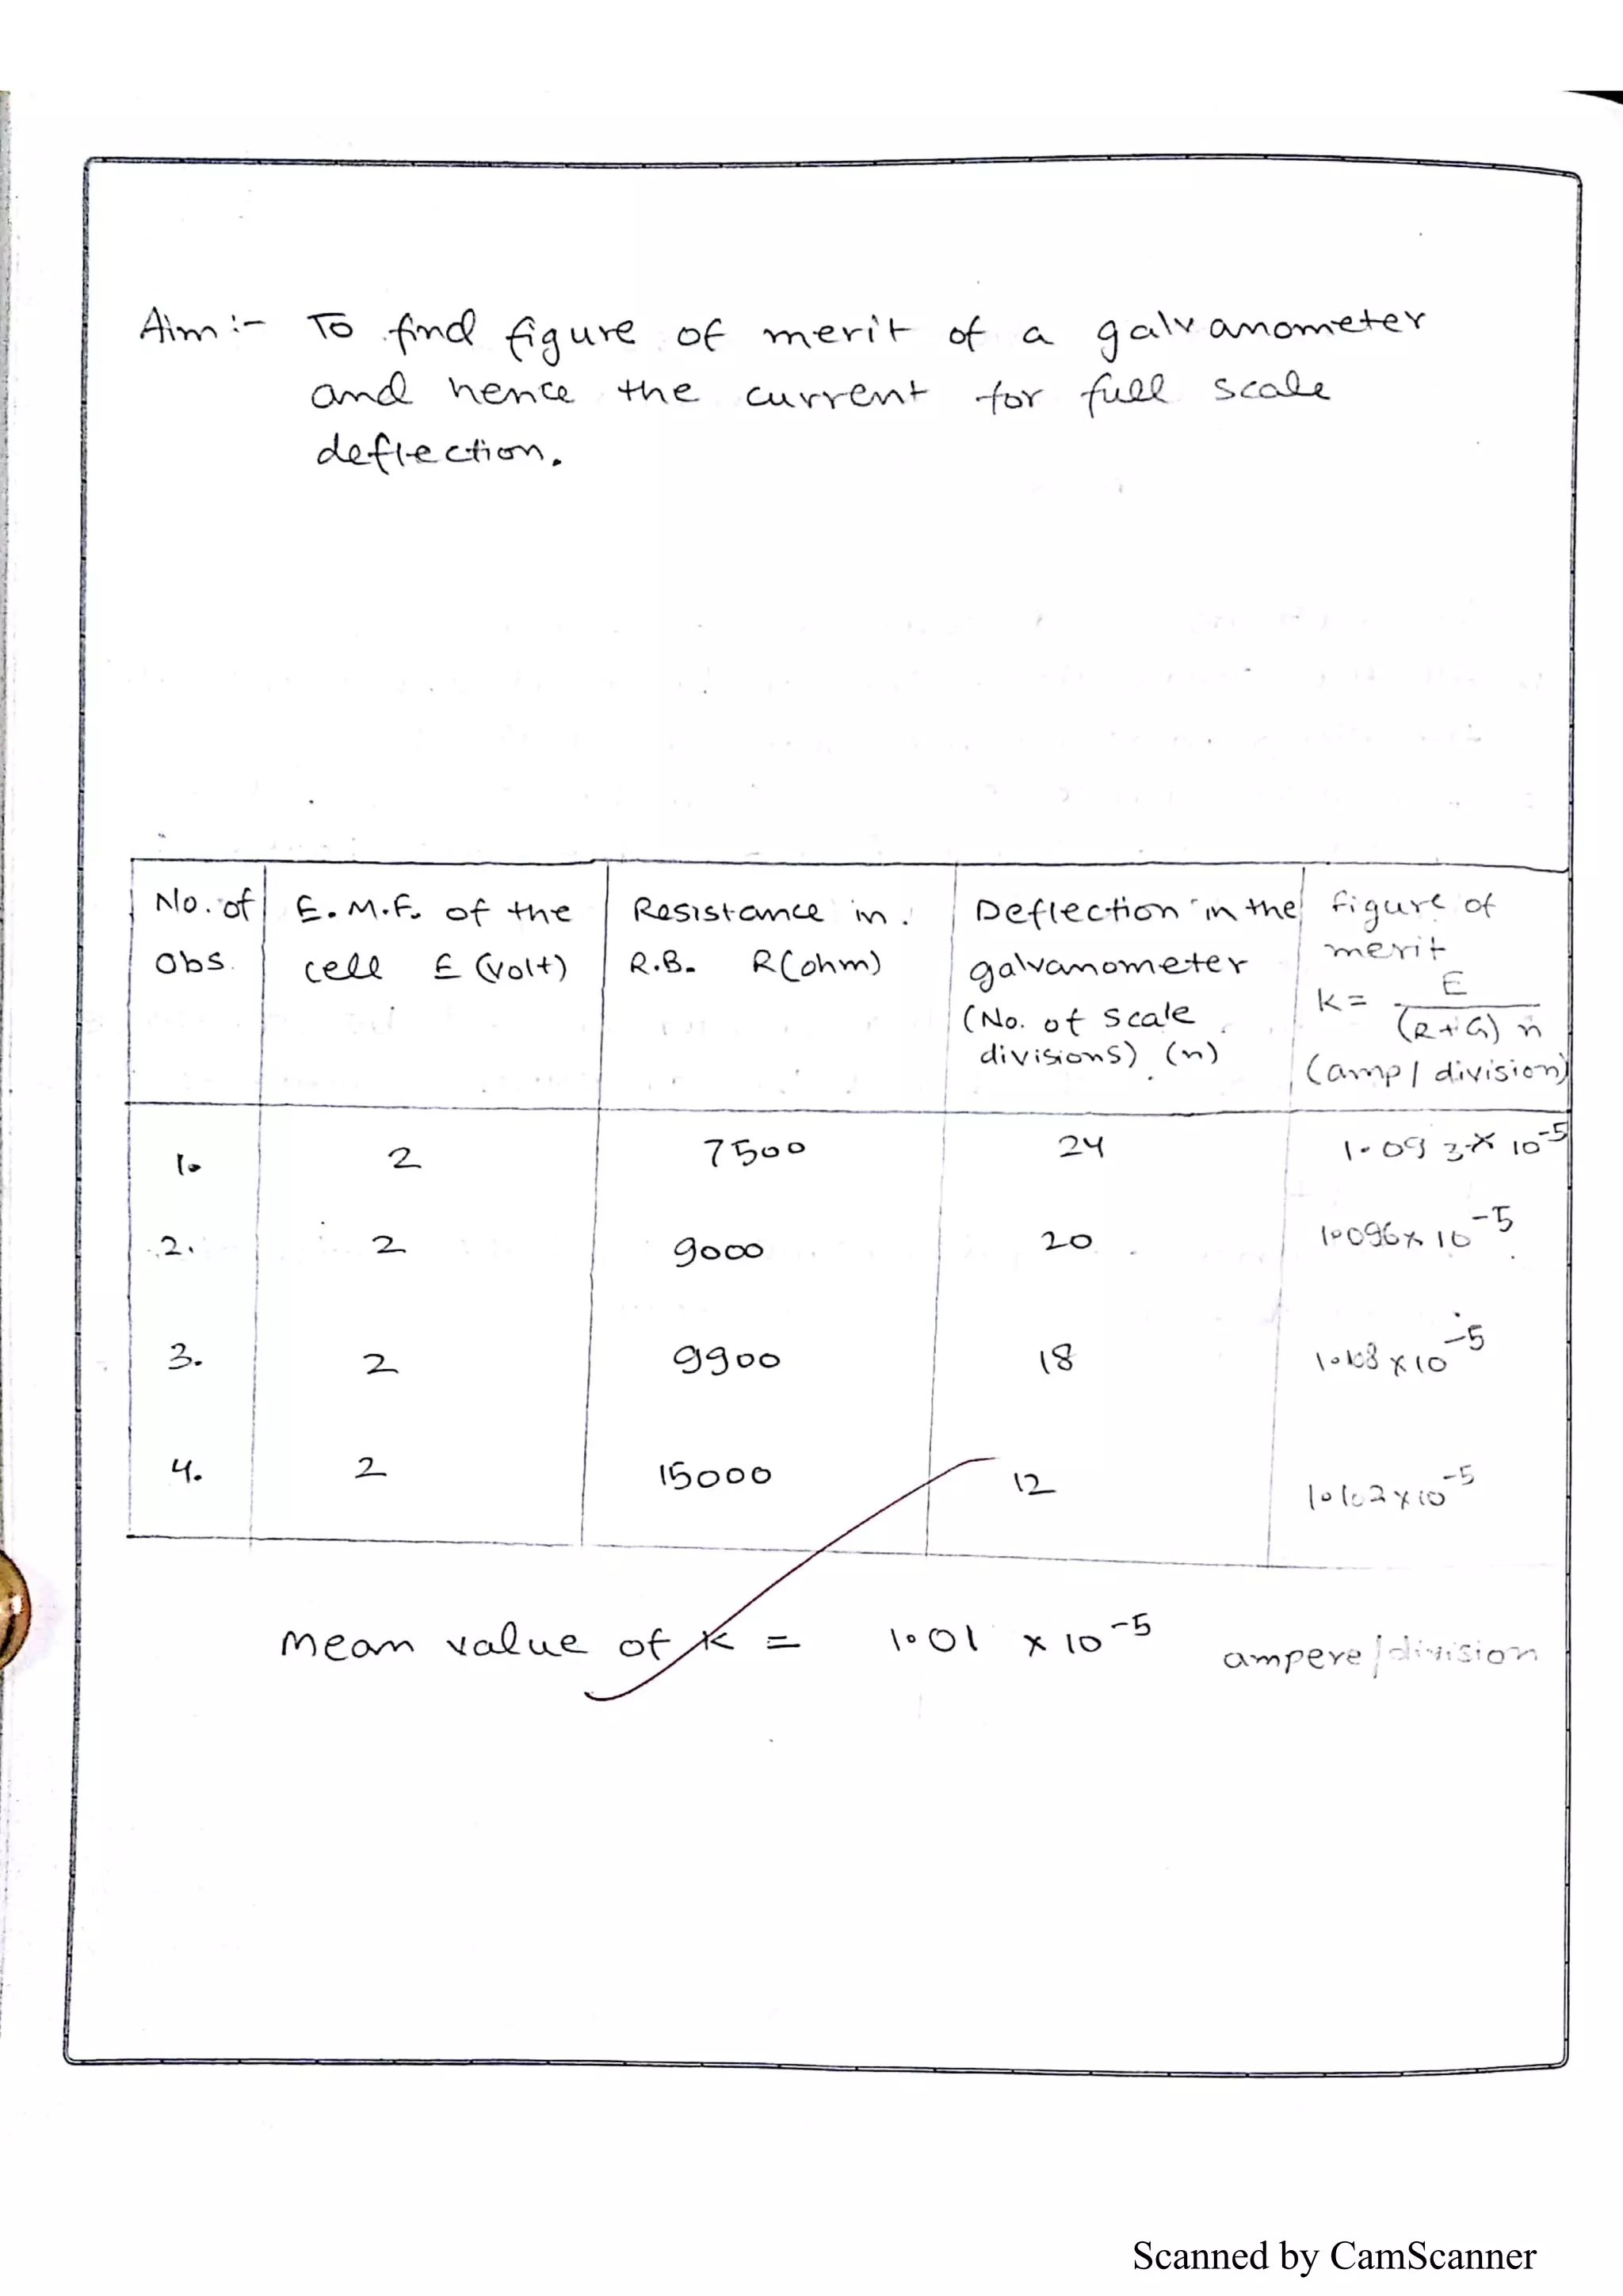 Aim :- To find figure of merit of a galvanometer
and hence the current for full scale
deflection.
No. of Obs.
E.M.F. of the cell E (Volt)
Resistance in R.B. R(ohm)
Deflection in the galvanometer (No. of scale divisions) (n)
figure of merit K = E / (R+G) n (amp / division)
1. 2 7500 24 1.093 × 10⁻⁵
2. 2 9000 20 1.096 × 10⁻⁵
3. 2 9900 18 × 10⁻⁵
4. 2 15000 12 1.102 × 10⁻⁵
Mean value of K = 1.01 × 10⁻⁵ ampere / division
Scanned by CamScanner